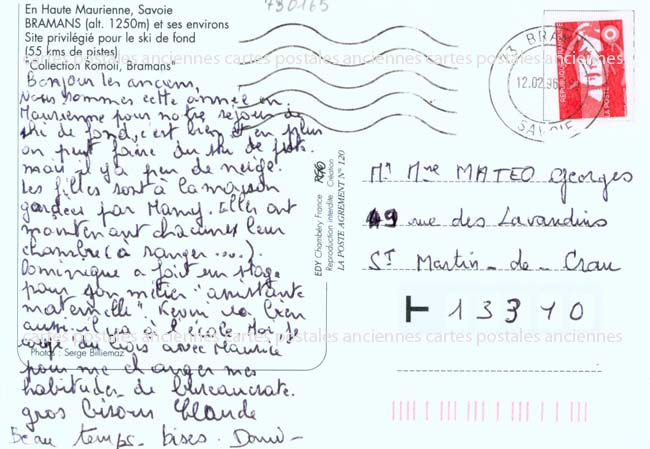 En Haute Maurienne, Savoie
BRAMANS (alt. 1250m) et ses environs
Site privilégié pour le ski de fond
(55 kms de pistes)
"Collection Komoli, Bramans"
730165
Bonjour les anciens,
Nous sommes cette année en
Maurienne pour notre séjour de
ski de fond, c'est bien et en plus
on peut faire du ski de piste.
mais il y a peu de neige.
Les filles sont à la maison
gardées par Mamy. Elles ont
maintenant chacunes leur
chambre (à ranger...).
Dominique a fait un stage
pour son métier "assistante
maternelle". Kevin va bien
aussi. il va à l'école. Moi, je
au bois avec Maurice
pour me changer mes
habitudes de bureaucrate.
gros bisous Claude
Beau temps. bises.
Photos : Serge Billiemaz
EDY Chambéry France
Reproduction interdite Création
LA POSTE AGREMENT N° 120
12.02.96
SAVOIE
REPUBLIQUE
LA POSTE
Mr Mme MATEO Georges
49 rue des Lavandins
St Martin - de - Crau
13310
cartes postales anciennes cartes postales anciennes cartes postales anciennes
cartes postales anciennes cartes postales anciennes cartes postales anciennes